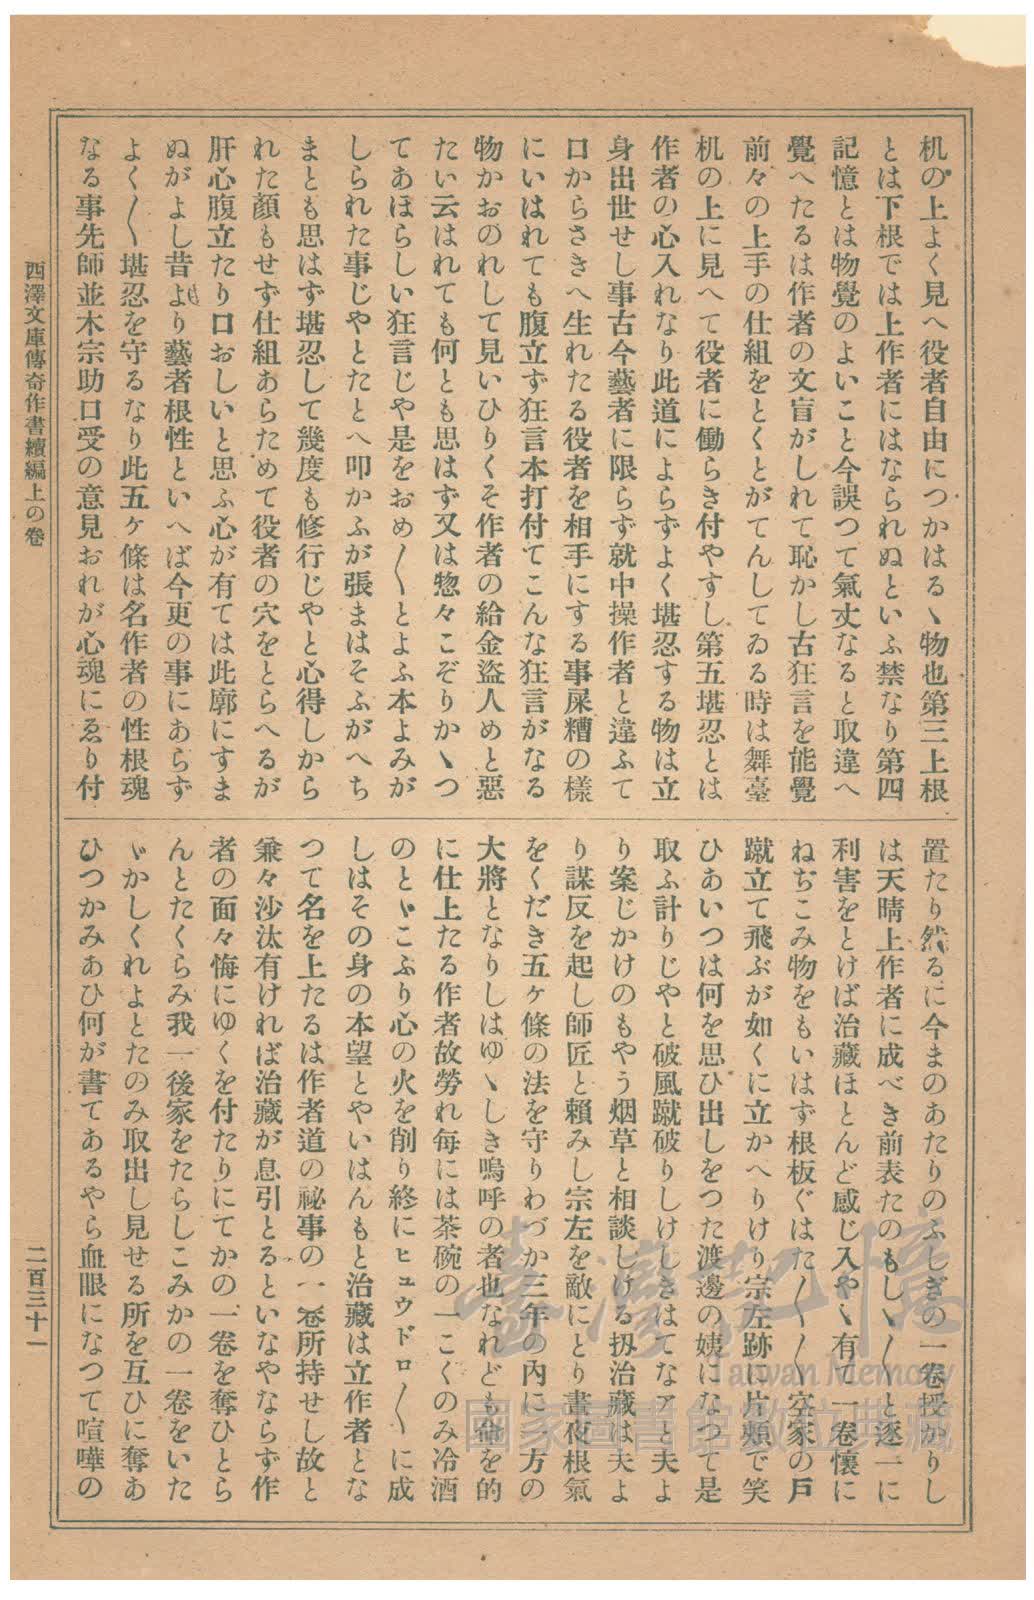 机の上よく見へ役者自由につかはるゝ物也第三上根
とは下根では上作者にはなられぬといふ禁なり第四
記憶とは物覺のよいこと今誤つて氣丈なると取違へ
覺へたるは作者の文盲がしれて恥かし古狂言を能覺
前々の上手の仕組をとくとがてんしてゐる時は舞臺
机の上に見へて役者に働らき付やすし第五堪忍とは
作者の心入れなり此道によらずよく堪忍する物は立
身出世せし事古今藝者に限らず就中操作者と違ふて
口からさきへ生れたる役者を相手にする事屎糟の樣
にいはれても腹立ず狂言本打付てこんな狂言がなる
物かおのれして見いひりくそ作者の給金盜人めと惡
たい云はれても何とも思はず又は惣々こぞりかゝつ
てあほらしい狂言じや是をおめ〳〵とよふ本よみが
しられた事じやとたとへ叩かふが張まはそふがへち
まとも思はず堪忍して幾度も修行じやと心得しから
れた顏もせず仕組あらためて役者の穴をとらへるが
肝心腹立たり口おしいと思ふ心が有ては此廓にすま
ぬがよし昔より藝者根性といへば今更の事にあらず
よく〳〵堪忍を守るなり此五ヶ條は名作者の性根魂
なる事先師並木宗助口受の意見おれが心魂にゑり付
置たり然るに今まのあたりのふしぎの一卷授かりし
は天晴上作者に成べき前表たのもし〳〵と逐一に
利害をとけば治藏ほとんど感じ入やゝ有て一卷懷に
ねぢこみ物をもいはず根板ぐはた〳〵〳〵空家の戶
蹴立て飛ぶが如くに立かへりけり宗左跡に片頰で笑
ひあいつは何を思ひ出しをつた渡邊の姨になつて是
取ふ計りじやと破風蹴破りしけしきはてなァと夫よ
り案じかけのもやう烟草と相談しける扨治藏は夫よ
り謀反を起し師匠と賴みし宗左を敵にとり晝夜根氣
をくだき五ヶ條の法を守りわづか三年の內に一方の
大將となりしはゆゝしき嗚呼の者也なれども俺を的
に仕上たる作者故勞れ每には茶碗の一こくのみ冷酒
のとゞこふり心の火を削り終にヒュウドロ〳〵に成
しはその身の本望とやいはんもと治藏は立作者とな
つて名を上たるは作者道の祕事の一卷所持せし故と
兼々沙汰有ければ治藏が息引とるといなやならず作
者の面々悔にゆくを付たりにてかの一卷を奪ひとら
んとたくらみ我一後家をたらしこみかの一卷をいた
ゞかしくれよとたのみ取出し見せる所を互ひに奪あ
ひつかみあひ何が書てあるやら血眼になつて喧嘩の
西澤文庫傳奇作書續編上の卷
二百三十一
臺灣記憶
Taiwan Memory
國家圖書館數位典藏